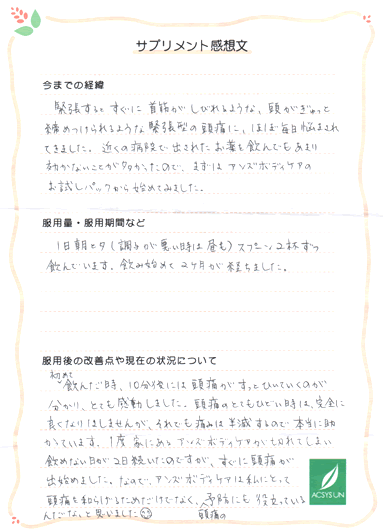 サプリメント感想文
今までの経緯
緊張すると すぐに 首筋が しびれるような、頭が ぎゅっと
締めつけられるような 緊張型の 頭痛に、ほぼ毎日 悩まされ
てきました。近くの病院で出されたお薬を飲んでもあまり
効かないことが多かったので、まずは アンズボディケアの
お試しパックから始めてみました。
服用量・服用期間など
1日朝と夕(調子が悪い時は昼も)スプーン2杯ずつ
飲んでいます。飲み始めて 2ヶ月が経ちました。
服用後の改善点や現在の状況について
初めて
飲んだ時、10分後には 頭痛が すっとひいていくのが
分かり、とても感動しました。頭痛のとてもひどい時は、完全に
良くなりはしませんが、それでも痛みは半減するので本当に助
かっています。1度 家にある アンズボディケアが 切れてしまい
飲めない日が2日続いたのですが、すぐに頭痛が
出始めました。なので、アンズボディケアは私にとって
頭痛を和らげるためだけでなく、予防にも役立っている
んだな、と思いました
頭痛の
ACSYSUN